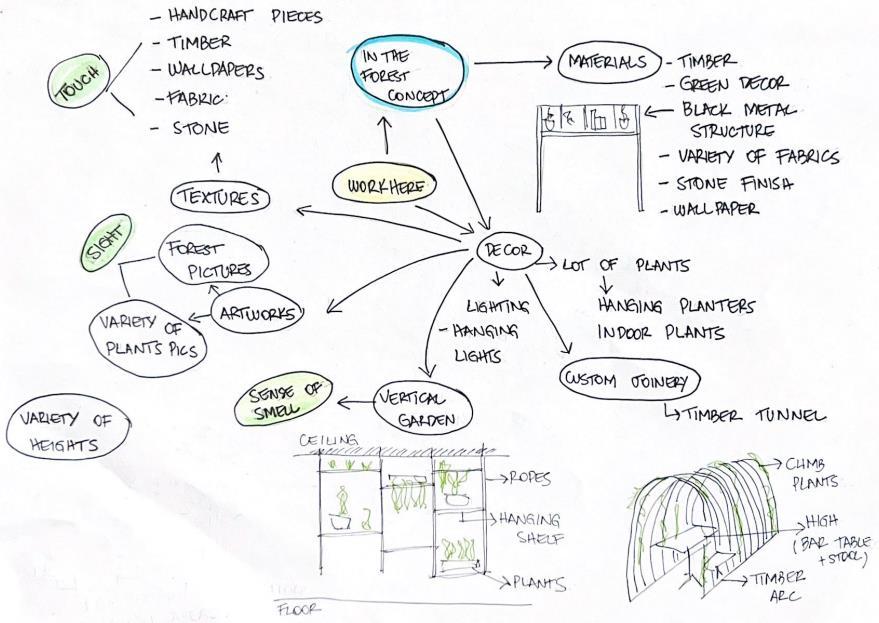 - HANDCRAFT PIECES
- TIMBER
- WALLPAPERS
- FABRIC
- STONE
TOUCH
IN THE
FOREST
CONCEPT
MATERIALS
- TIMBER
- GREEN DECOR
BLACK METAL
STRUCTURE
- VARIETY OF FABRICS
- STONE FINISH
- WALLPAPER
TEXTURES
WORKHERE
SIGHT
FOREST
PICTURES
DECOR
LOT OF PLANTS
HANGING PLANTERS
INDOOR PLANTS
LIGHTING
- HANGING
LIGHTS
ARTWORKS
VARIETY OF
PLANTS PICS
CUSTOM JOINERY
TIMBER TUNNEL
SENSE OF
SMELL
VERTICAL
GARDEN
VARIETY OF
HEIGHTS
CEILING
ROPES
HANGING
SHELF
PLANTS
FLOOR
CLIMB
PLANTS
HIGH
(BAR TABLE
+ STOOL)
TIMBER
ARC